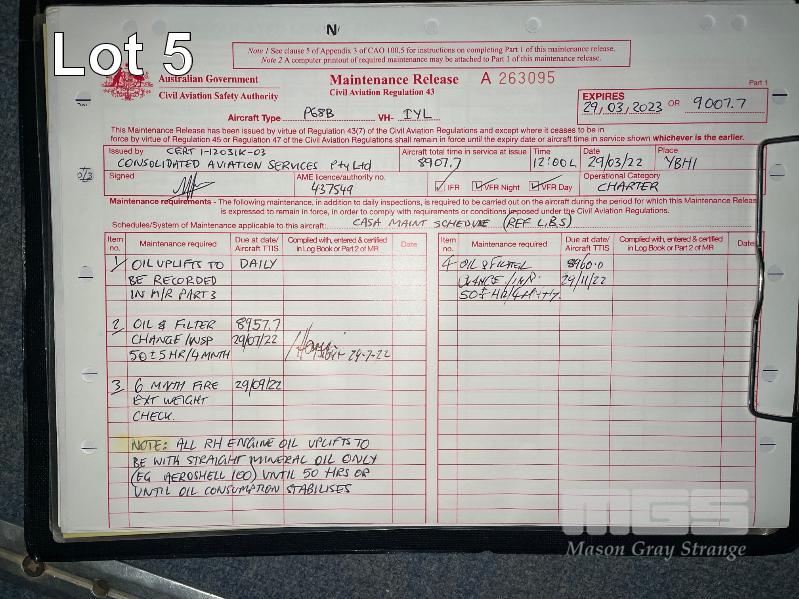 Lot 5
N
Note 1 See clause 5 of Appendix 3 of CAO 100.5 for instructions on completing Part 1 of this maintenance release.
Note 2 A computer printout of required maintenance may be attached to Part 1 of this maintenance release.
Australian Government
Civil Aviation Safety Authority
Maintenance Release
Civil Aviation Regulation 43
A 263095
Part 1
Aircraft Type P68B VH- IYL
EXPIRES
29,03,2023 OR 9007.7
This Maintenance Release has been issued by virtue of Regulation 43(7) of the Civil Aviation Regulations and except where it ceases to be in
force by virtue of Regulation 45 or Regulation 47 of the Civil Aviation Regulations shall remain in force until the expiry date or aircraft time in service shown whichever is the earlier.
Issued by CERT 1-12031K-03
CONSOLIDATED AVIATION SERVICES Pty Ltd
Aircraft total time in service at issue
8907.7
Time
12:00L
Date
29/03/22
Place
YBHI
Signed
AME licence/authority no.
437549
IFR VFR Night VFR Day
Operational Category
CHARTER
Maintenance requirements - The following maintenance, in addition to daily inspections, is required to be carried out on the aircraft during the period for which this Maintenance Release
is expressed to remain in force, in order to comply with requirements or conditions imposed under the Civil Aviation Regulations.
Schedules/System of Maintenance applicable to this aircraft: CASA MAINT SCHEDULE (REF L.B.S)
Item no Maintenance required Due at date/ Aircraft TTIS Complied with, entered & certified in Log Book or Part 2 of MR Date
1 OIL UPLIFTS TO DAILY
BE RECORDED
IN M/R PART 3
2 OIL & FILTER 8957.7
CHANGE/INSP 29/07/22
50±5HR/4 MNTH 29-7-22
3 6 MNTH FIRE 29/09/22
EXT WEIGHT
CHECK.
NOTE: ALL RH ENGINE OIL UPLIFTS TO
BE WITH STRAIGHT MINERAL OIL ONLY
(EG AEROSHELL 100) UNTIL 50 HRS OR
UNTIL OIL CONSUMPTION STABILISES
Item no. Maintenance required Due at date/ Aircraft TTIS Complied with, entered & certified in Log Book or Part 2 of MR Date
4 OIL & FILTER 8960.0
29/11/22
MGS
Mason Gray Strange